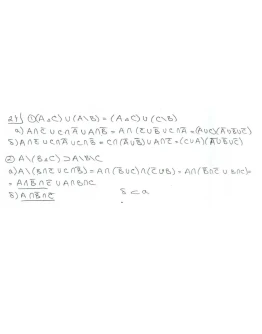 21) ① (A△C) ∪ (A\B) = (A△C) ∪ (C\B)
a) A∩C̄ ∪ C∩Ā ∪ A∩B̄ = A∩(C̄∪B̄) ∪ C∩Ā = (A∪C)(Ā∪B̄∪C̄)
б) A∩C̄ ∪ C∩Ā ∪ C∩B̄ = C∩(Ā∪B̄) ∪ A∩C̄ = (C∪A)(Ā∪B̄∪C̄)
② A\(B△C) ⊃ A\B\C
a) A\(B∩C̄ ∪ C∩B̄) = A∩(B̄∪C)∩(C̄∪B) = A∩(B̄∩C̄ ∪ B∩C) =
= A∩B̄∩C̄ ∪ A∩B∩C
б) A∩B̄∩C̄
б ⊂ a